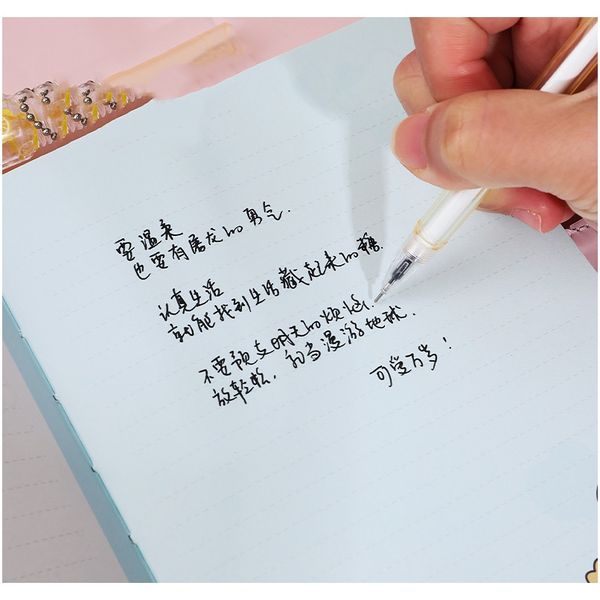 要温柔
也要有屠龙的勇气.
认真生活
就能找到生活藏起来的糖.
不要预支明天的烦恼.
放轻松, 就当漫游地球.
可爱万岁!